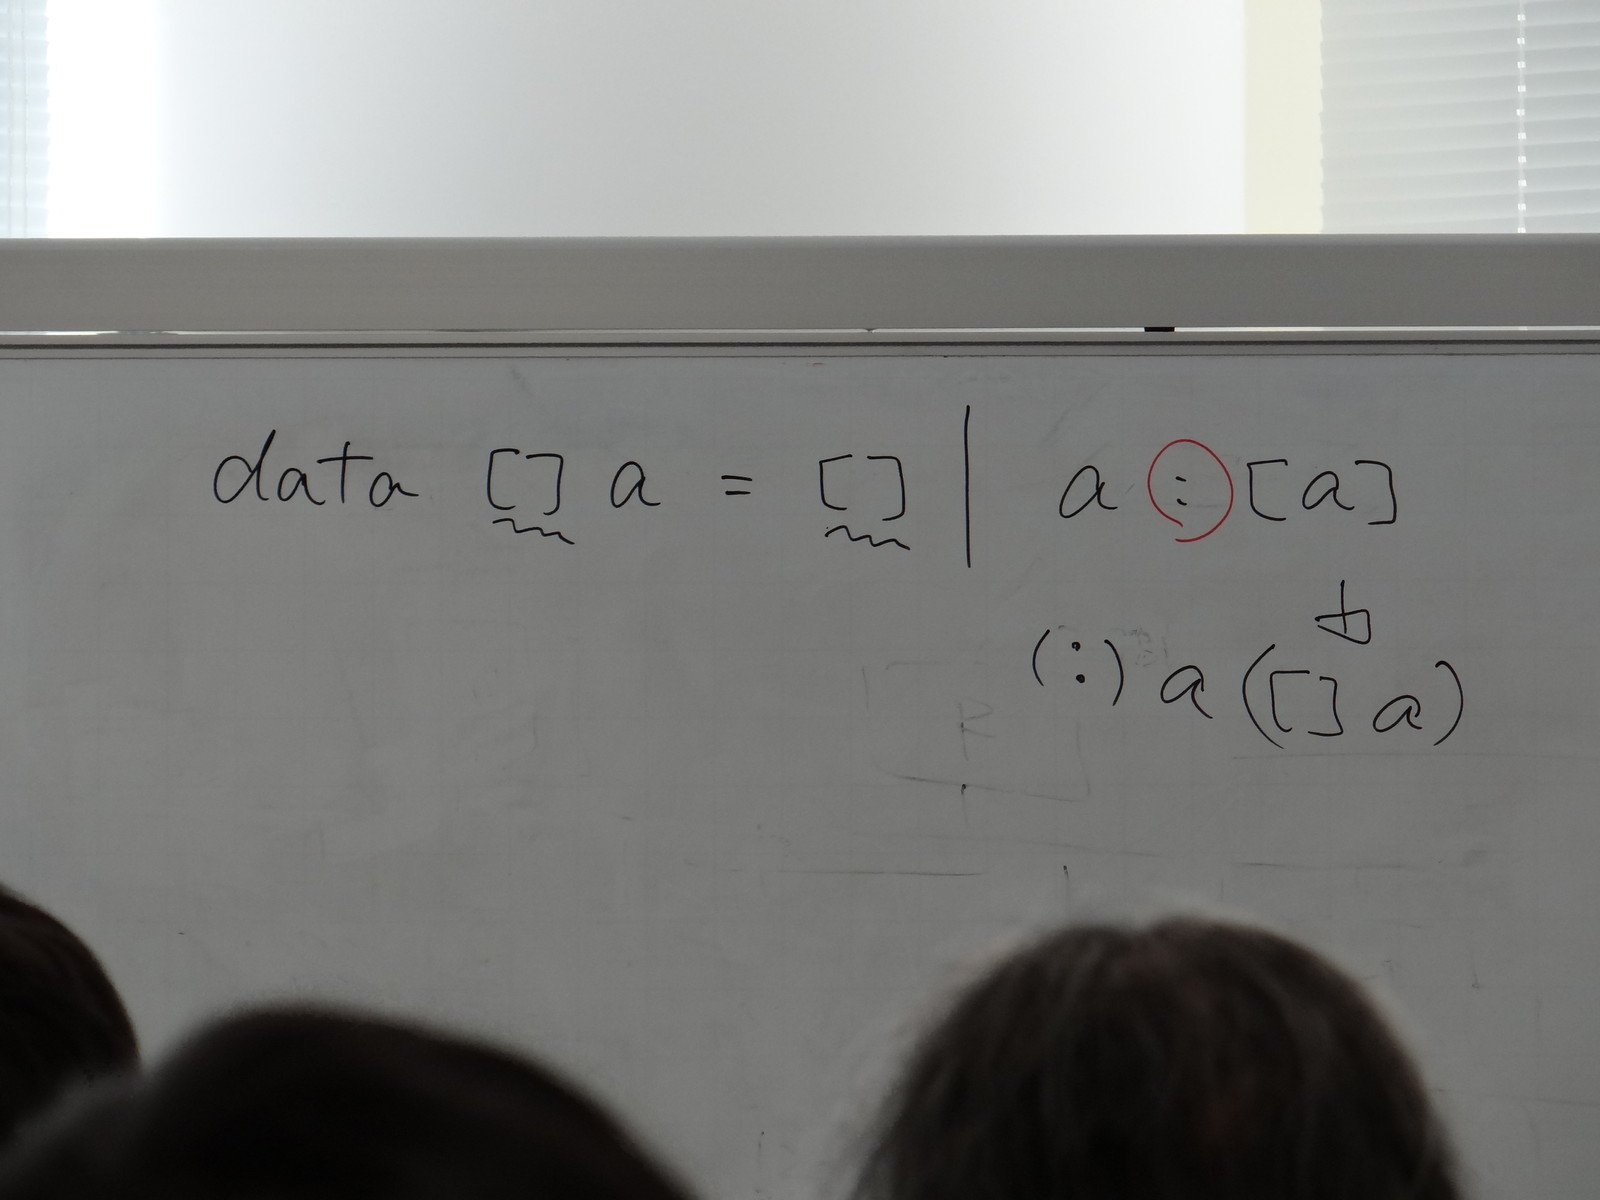 data [] a = [] | a : [a]
(:) a ([] a)